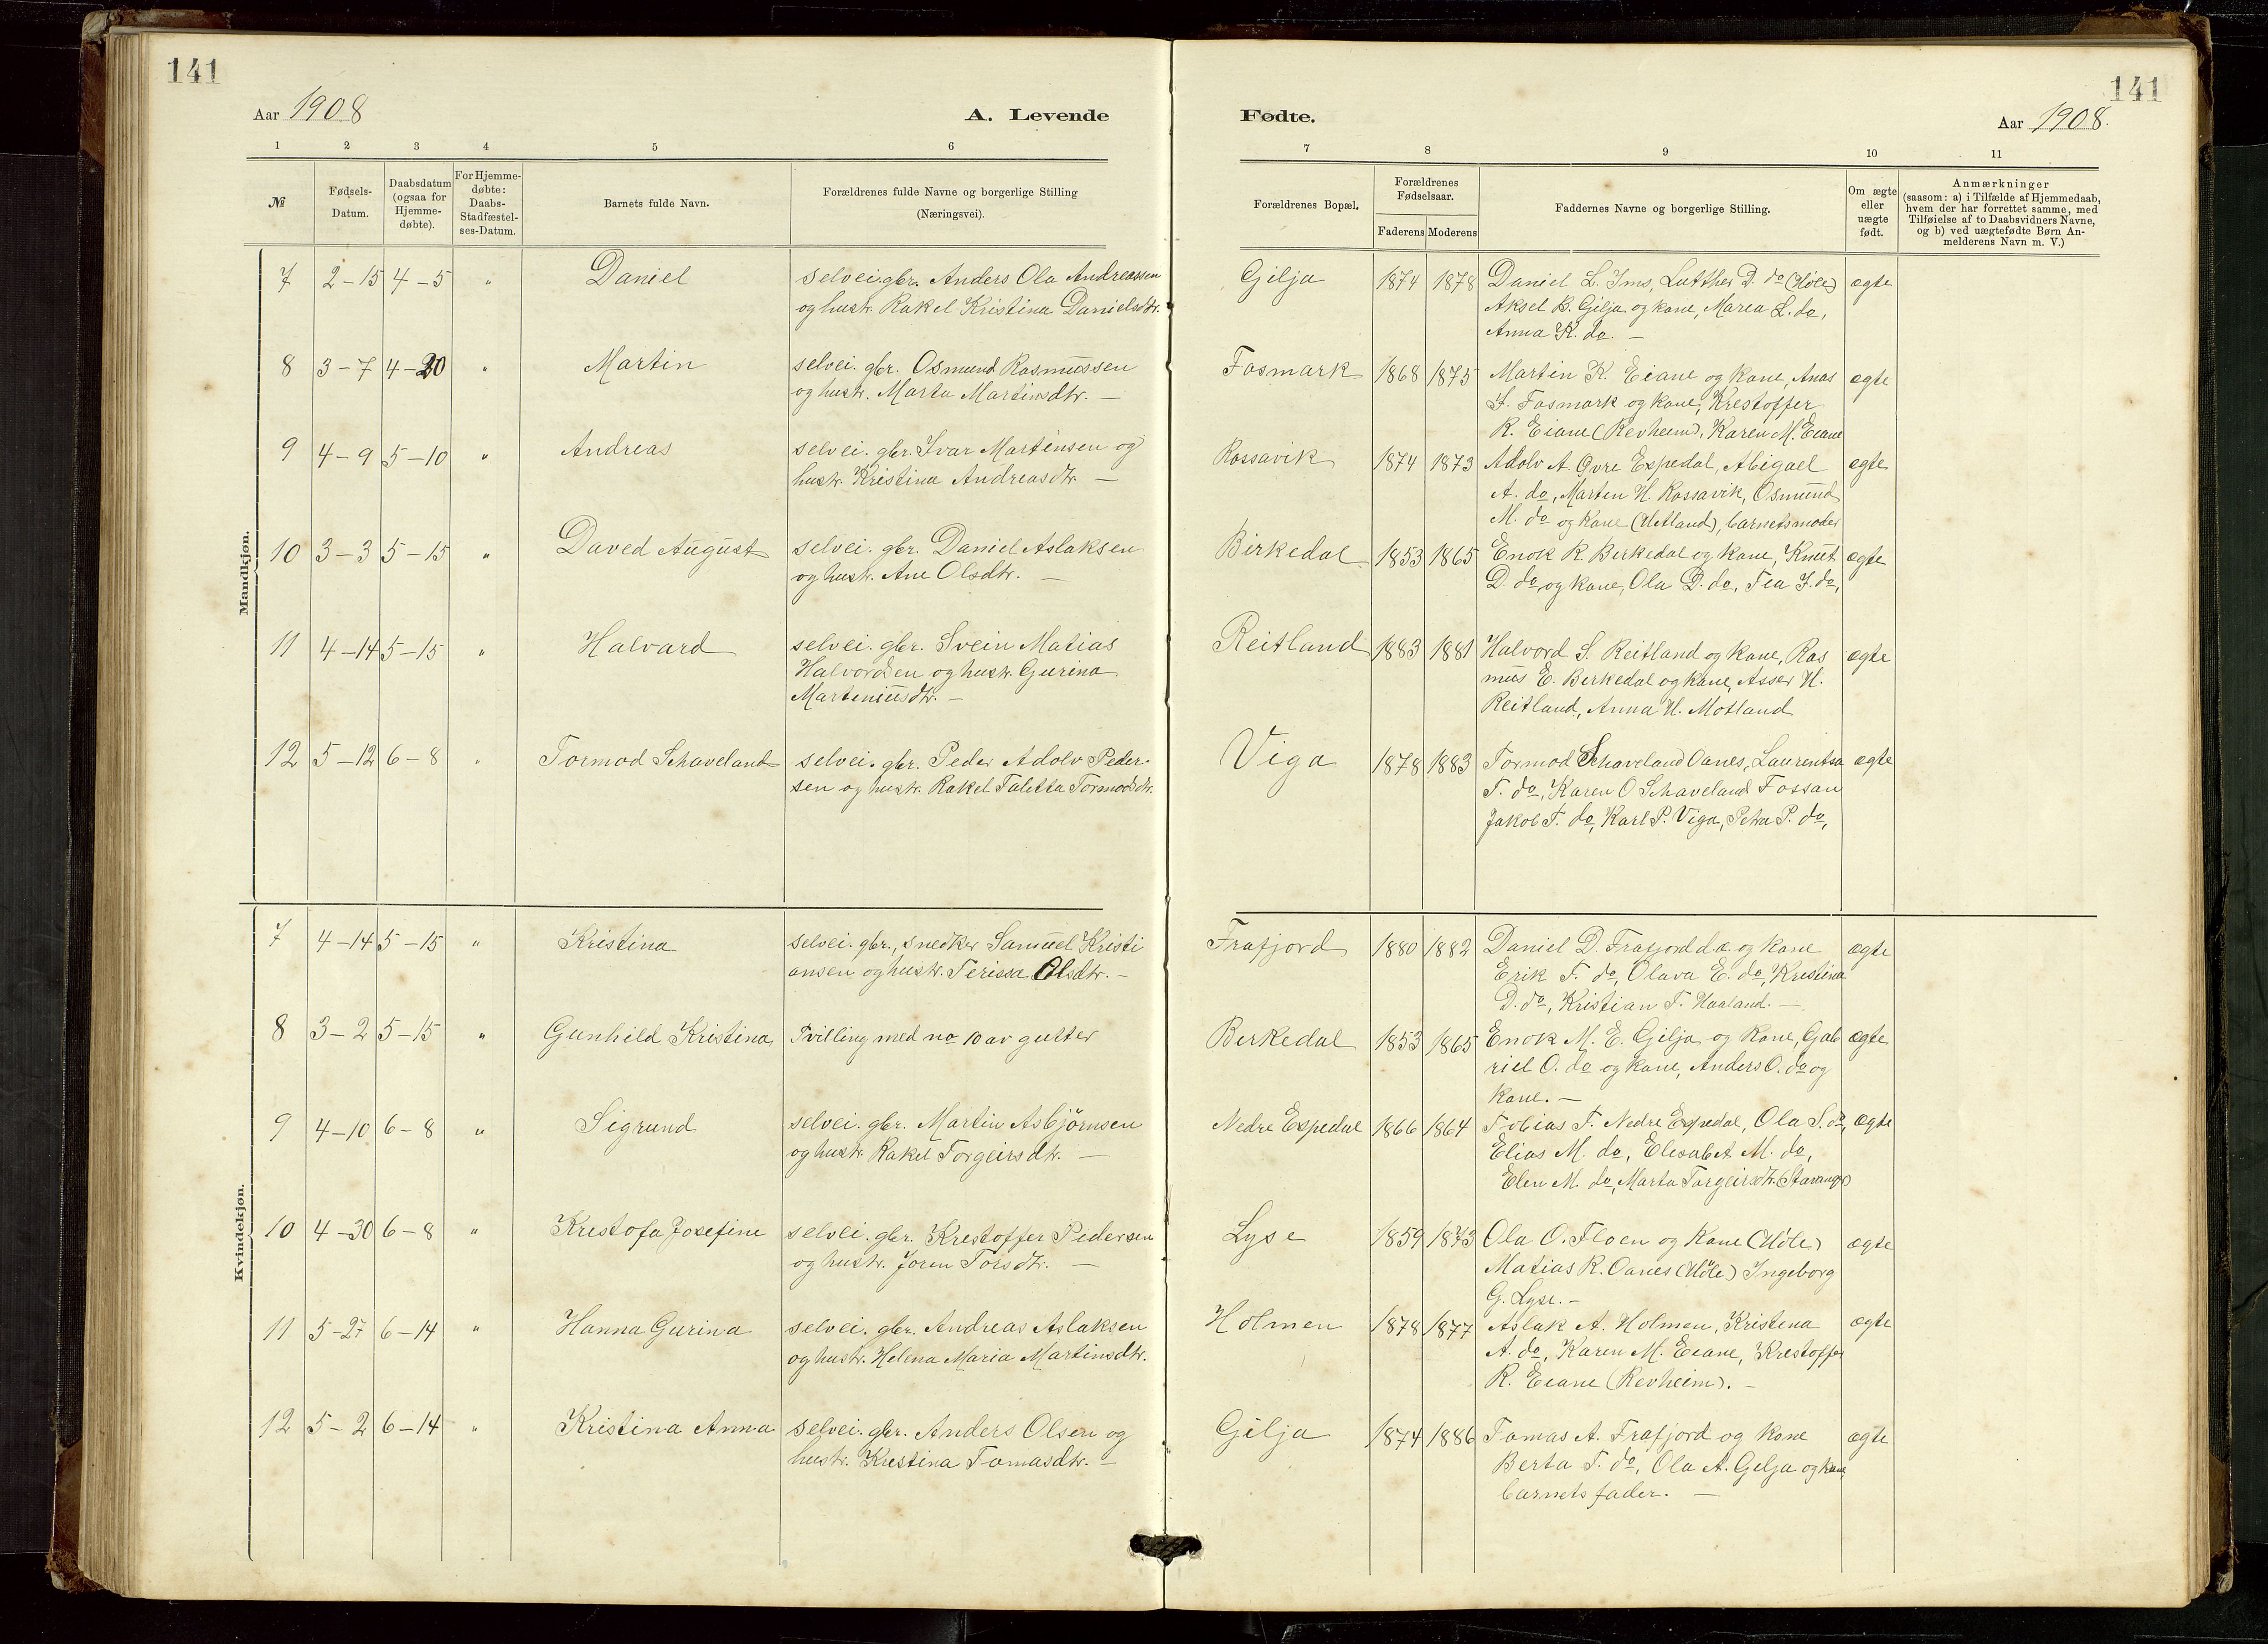 141
141
Aar 1908
A. Levende
Fødte.
Aar 1908.
1 2 3 4 5 6
7 8 9 10 11
№
Fødsels-
Datum.
Daabsdatum
(ogsaa for
Hjemme-
døbte).
For Hjemme-
døbte:
Daabs-
Stadfæstel-
ses-Datum.
Barnets fulde Navn.
Forældrenes fulde Navne og borgerlige Stilling
(Næringsvei).
Forældrenes Bopæl.
Forældrenes
Fødselsaar.
Faderens Moderens
Faddernes Navne og borgerlige Stilling.
Om ægte
eller
uægte
født.
Anmærkninger
(saasom: a) i Tilfælde af Hjemmedaab,
hvem der har forrettet samme, med
Tilføielse af to Daabsvidners Navne,
og b) ved uægtefødte Børn An-
melderens Navn m. V.)
Mandkjøn.
7 2-15 4-5 " Daniel selvei.gbr. Anders Ola Andreassen Gilja 1874 1878 Daniel L. Ims, Lutther D. do (Höle) ægte
og hustr. Rakel Kristina Danielsdtr. Aksel B. Gilja og kone, Marea L. do,
Anna K. do. —
8 3-7 4-20 " Martin selvei. gbr. Osmund Rasmussen Fosmark 1868 1875 Martin K. Eiane og kone, Anas ægte
og hustr. Marta Martinsdtr. — S. Fosmark og kone, Krestoffer
R. Eiane (Revheim), Karen M. Eiane
9 4-9 5-10 " Andreas selvei. gbr. Ivar Martensen og Rossavik 1874 1873 Adolv A. Øvre Espedal, Abigael ægte
hustr. Kristina Andreasdtr. — A. do, Marten H. Rossavik, Osmund
M. do og kone (Hetland), barnets moder
10 3-3 5-15 " Daved August selvei. gbr. Daniel Aslaksen Birkedal 1853 1865 Enok R. Berkedal og kone, Knut ægte
og hustr. Ane Olsdtr. — D. do og kone, Ola D. do, Tea J. do,
11 4-14 5-15 " Halvard selvei. gbr. Svein Matias Reitland 1883 1881 Halvord S. Reitland og kone, Ras ægte
Halvordsen og hustr. Gurina mus E. Berkedal og kone, Asser H.
Marteniusdtr. — Reitland, Anna H. Motland
12 5-12 6-8 " Tormod Schaveland selvei. gbr. Peder Adolv Peder- Viga 1878 1883 Tormod Schaveland Oanes, Laurentsa ægte
sen og hustr. Rakel Taletta Tormodsdtr. T. do, Karen O Schaveland Fossan
Jakob T. do, Karl P. Viga, Petra P. do,
Kvindekjøn.
7 4-14 5-15 " Kristina selvei. gbr., snedker Samuel Kristi Frafjord 1880 1882 Daniel D. Frafjord d.æ. og kone ægte
ansen og hustr. Terissa Olsdtr. — Erik T. do, Olava E. do, Kristina
D. do, Kristian T. Haaland. —
8 3-2 5-15 " Gunhild Kristina Tvilling med no 10 av gutter Berkedal 1853 1865 Enok M. E. Gilja og kone, Gab ægte
riel O. do og kone, Anders O. do og
kone. —
9 4-10 6-8 " Sigrund selvei. gbr. Martin Asbjörnsen Nedre Espedal 1866 1864 Tobias T. Nedre Espedal, Ola S. do, ægte
og hustr. Rakel Torgeirsdtr. — Elias M. do, Elesabet M. do,
Elen M. do, Marta Torgeirsdtr. (Stavanger)
10 4-30 6-8 " Krestofa Josefine selvei. gbr. Krestoffer Pedersen Lyse 1859 1873 Ola O. Floen og kone (Höle) ægte
og hustr. Joren Torsdtr. — Matias R. Oanes (Höle) Ingeborg
G. Lyse. —
11 5-27 6-14 " Hanna Gurina selvei. gbr. Andreas Aslaksen Holmen 1878 1877 Aslak A. Holmen, Kristena ægte
og hustr. Helena Maria Martinsdtr. A. do, Karen M. Eiane, Krestoffer
R. Eiane (Revheim). —
12 5-2 6-14 " Kristina Anna selvei. gbr. Anders Olsen og Gilja 1874 1886 Tomas A. Frafjord og kone ægte
hustr. Krestina Tomasdtr. — Berta T. do, Ola A. Gilja og kone,
barnets fader. —